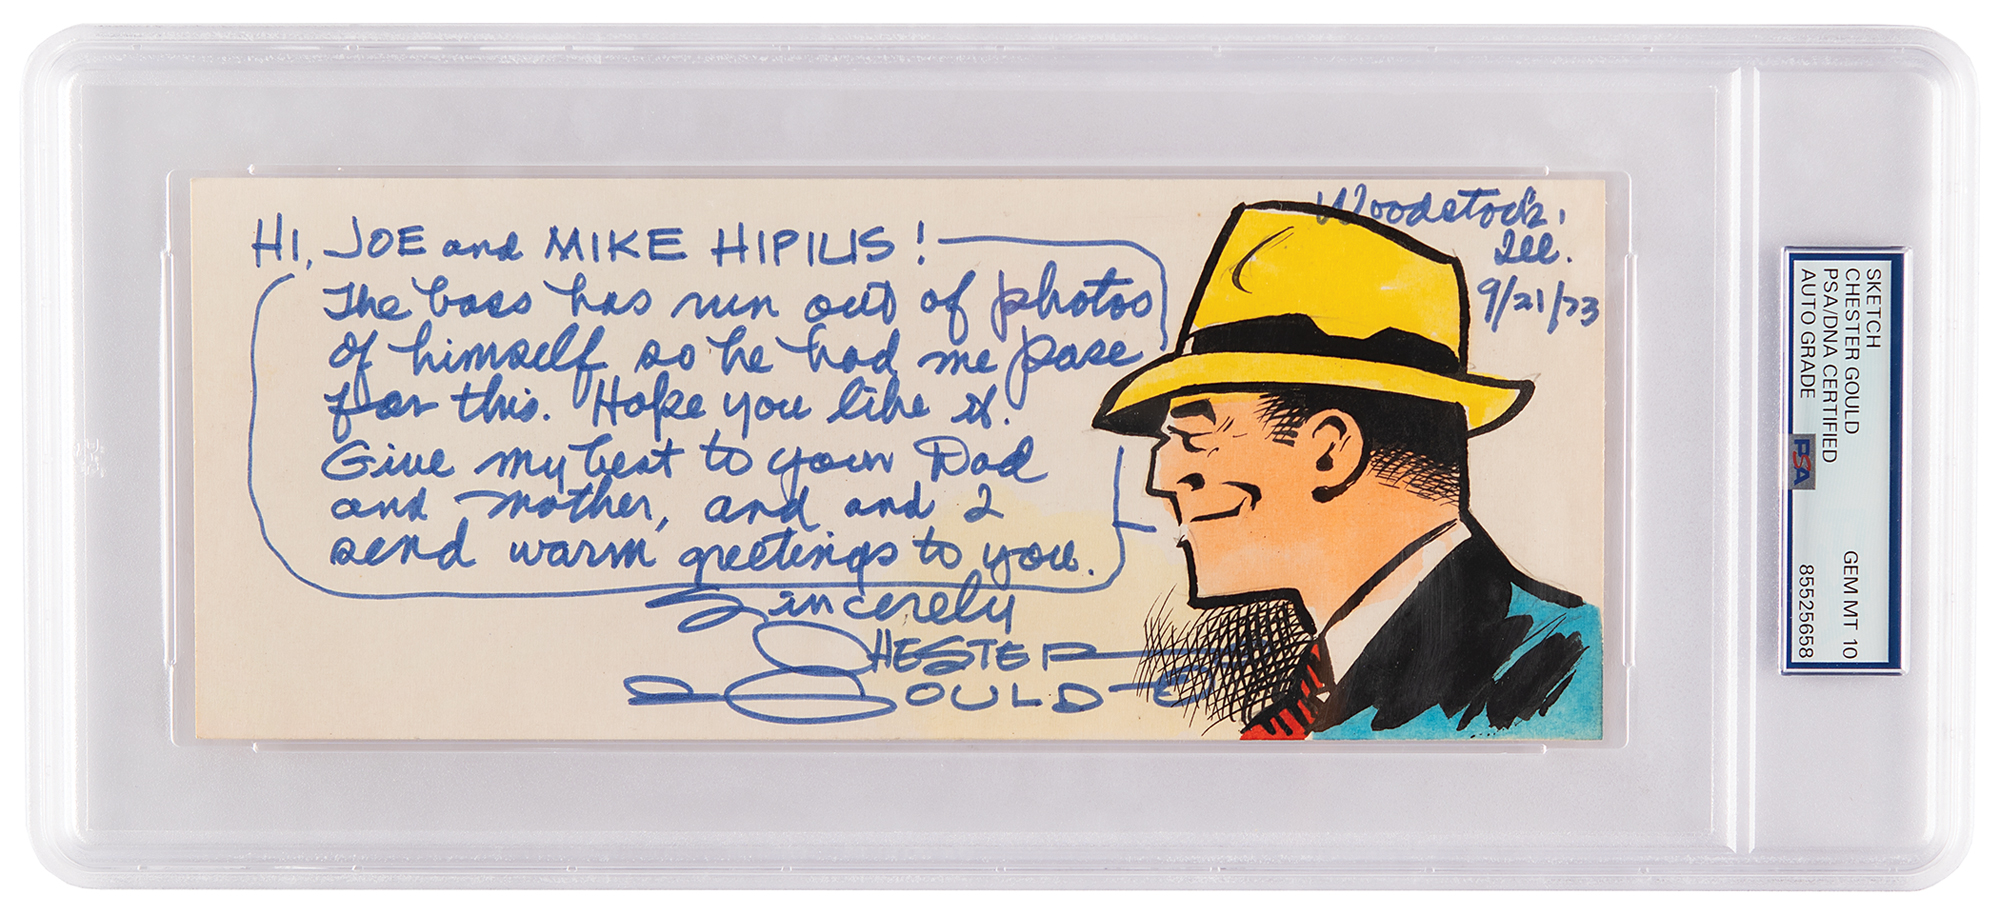 HI, JOE and MIKE HIPILIS!
The boss has run out of photos
of himself so he had me pose
for this. Hope you like it.
Give my best to your Dad
and mother, and and 2
send warm greetings to you.
Sincerely
CHESTER
GOULD
Woodstock,
Ill.
9/21/73
SKETCH
CHESTER GOULD
PSA/DNA CERTIFIED
AUTO GRADE
GEM MT 10
85525658
PSA